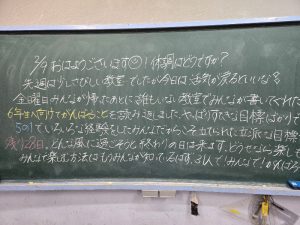 2/9 おはようございます☺!体調はどうですか?
先週は少しさびしい教室でしたが今日は活気が戻るといいな。
金曜日みんなが帰ったあとに誰もいない教室でみんなが書いてくれた
6年生へ向けてがんばることを読み返しました。やっぱりすてきな目標ばかりで
5の1でいろいろな経験をしたみんなだからこそ立てられた立派な目標
残り28日。どんな風に過ごそうと終わりの日は来ます。どうせなら楽しも
みんなで楽む方法はもうみんなが知っているはず。よし!みんな!でがんばろ